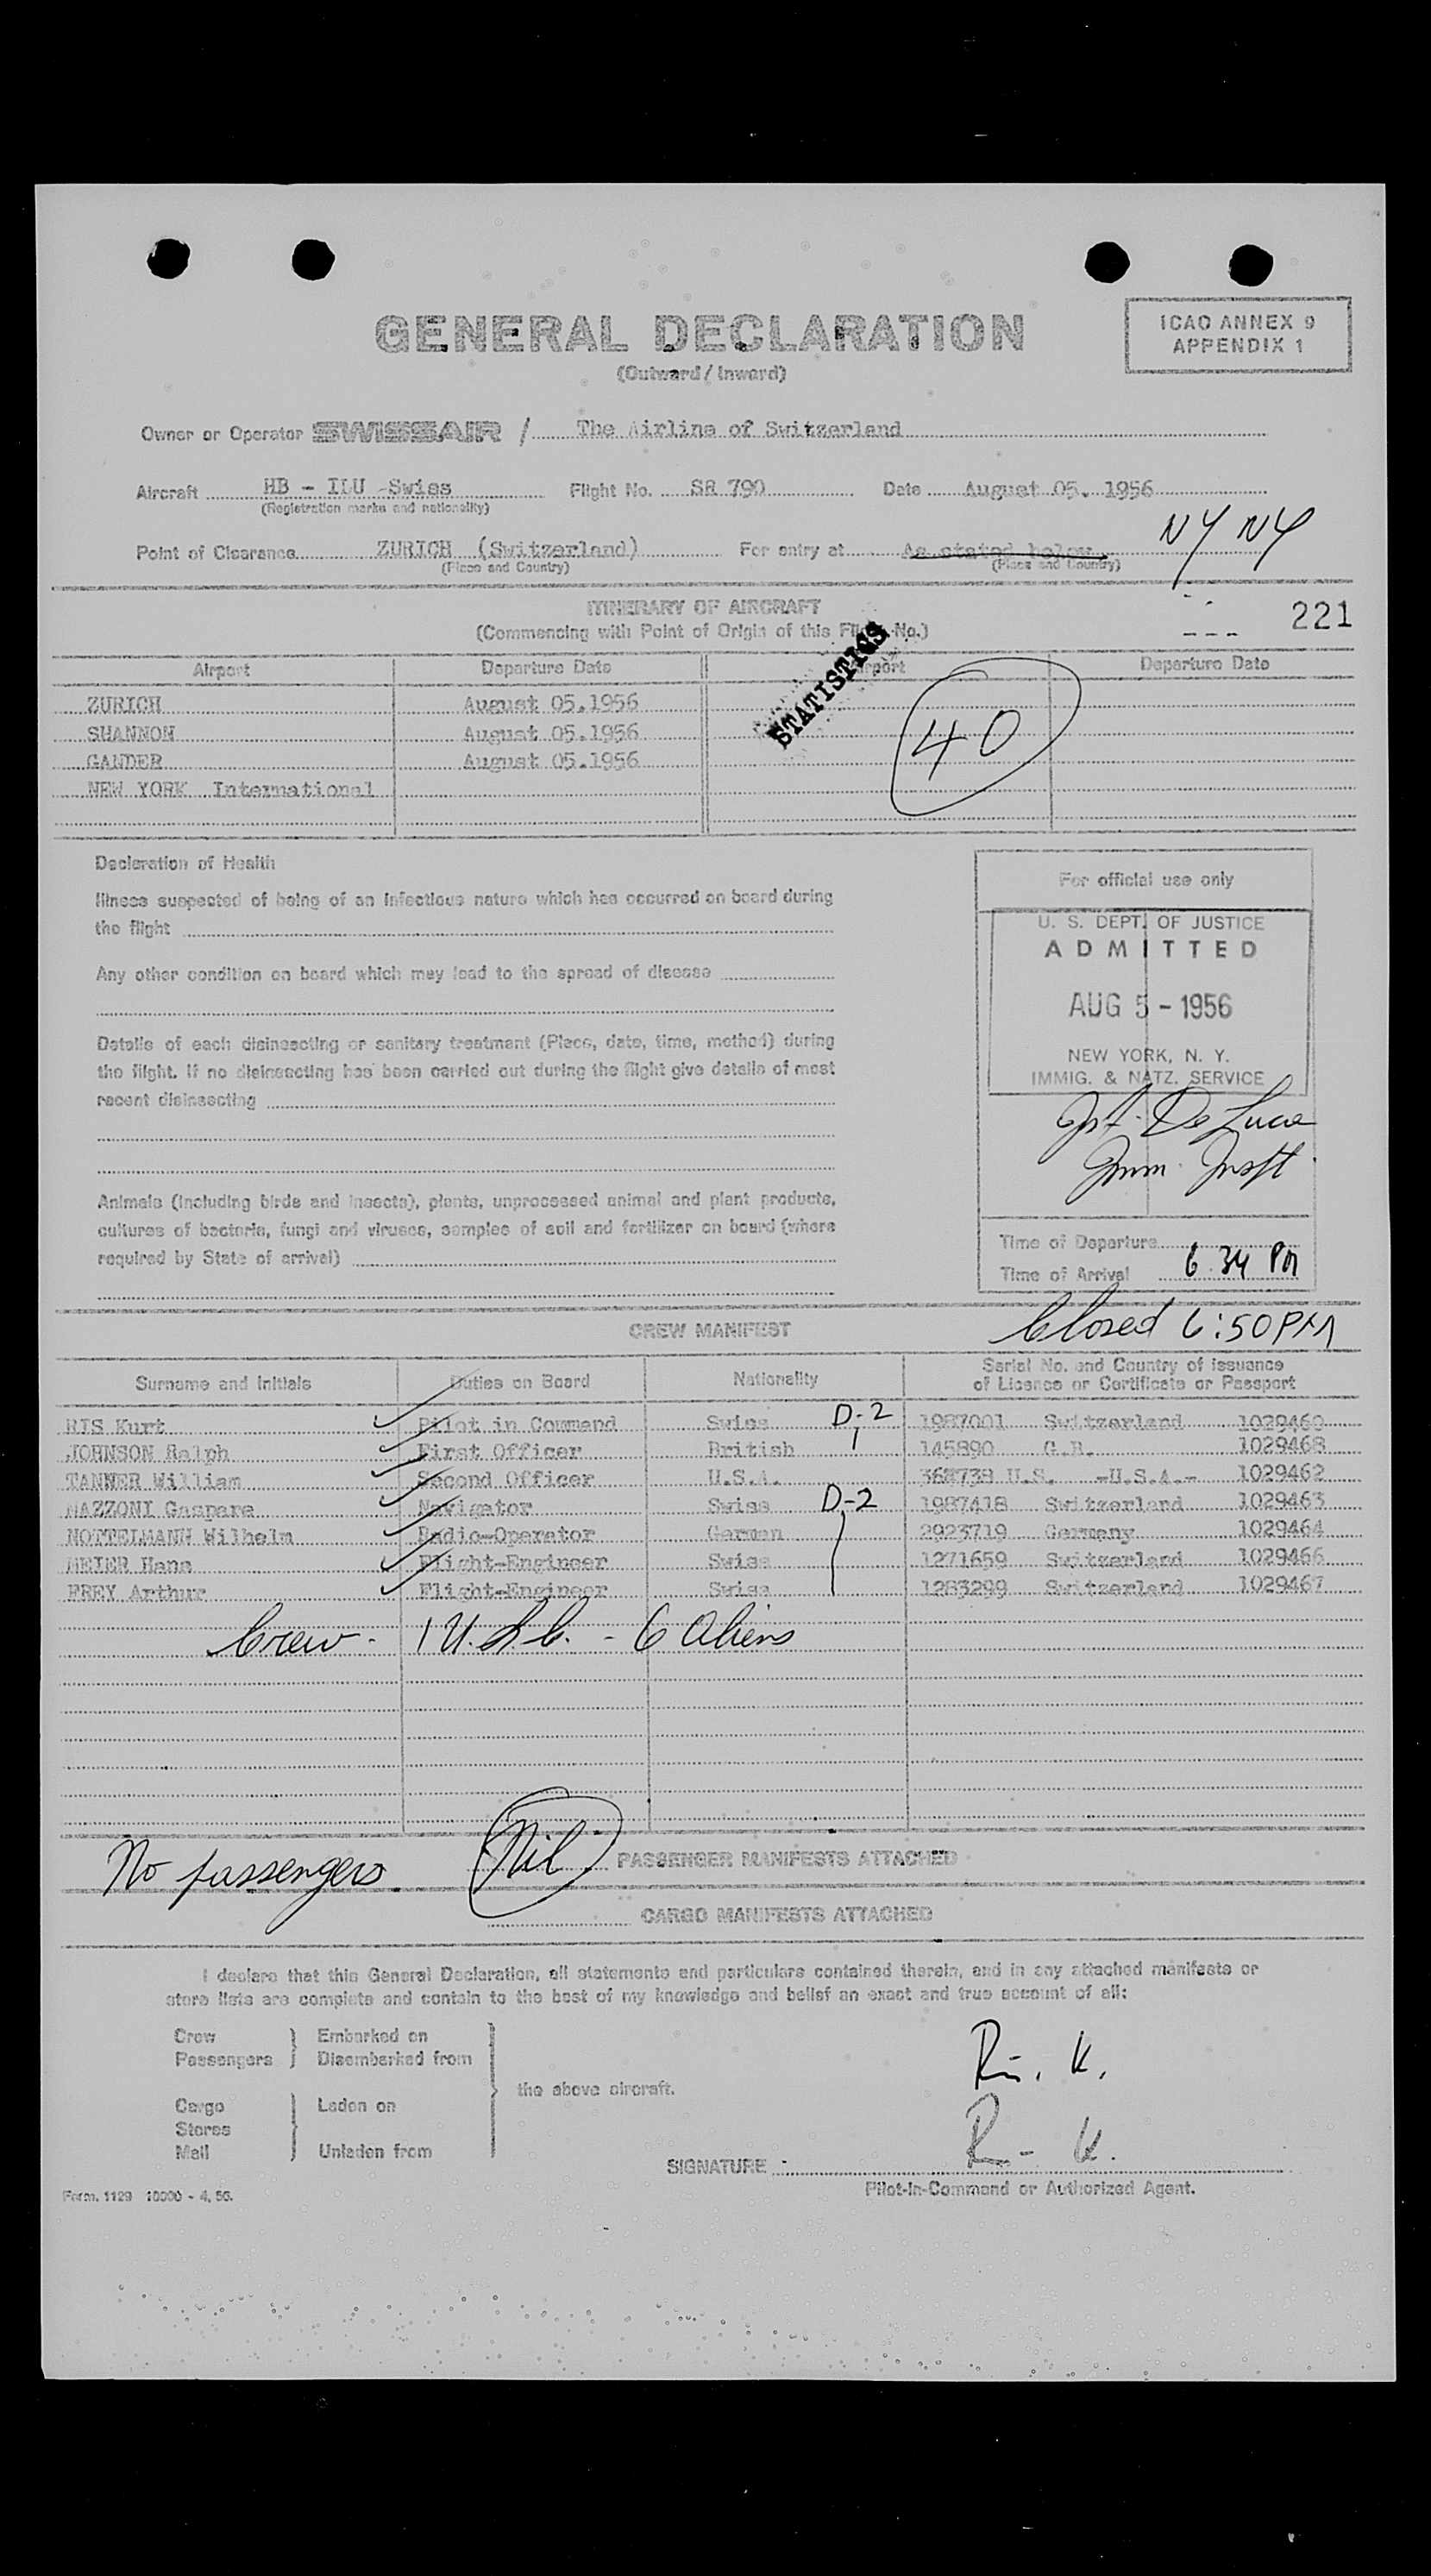 GENERAL DECLARATION
(Outward / Inward)
ICAO ANNEX 9
APPENDIX 1
Owner or Operator SWISSAIR / The Airline of Switzerland
Aircraft HB - ILU -Swiss Flight No. SR 790 Date August 05. 1956
(Registration marks and nationality)
NY NY
Point of Clearance ZURICH (Switzerland) For entry at As stated below
(Place and Country) (Place and Country)
ITINERARY OF AIRCRAFT
(Commencing with Point of Origin of this Flight No.)
221
STATISTICS
Airport Departure Date Airport Departure Date
ZURICH August 05.1956
SHANNON August 05.1956
GANDER August 05.1956
NEW YORK International
40
Declaration of Health
Illness suspected of being of an infectious nature which has occurred on board during
the flight
Any other condition on board which may lead to the spread of disease
Details of each disinsecting or sanitary treatment (Place, date, time, method) during
the flight. If no disinsecting has been carried out during the flight give details of most
recent disinsecting
Animals (including birds and insects), plants, unprocessed animal and plant products,
cultures of bacteria, fungi and viruses, samples of soil and fertilizer on board (where
required by State of arrival)
For official use only
U. S. DEPT. OF JUSTICE
ADMITTED
AUG 5 - 1956
NEW YORK, N. Y.
IMMIG. & NATZ. SERVICE
De Luca
Imm.
Time of Departure
Time of Arrival 6 34 PM
Closed 6:50 PM
CREW MANIFEST
Surname and Initials Duties on Board Nationality Serial No. and Country of Issuance
of Licence or Certificate or Passport
RIS Kurt Pilot in Command Swiss D-2 1987001 Switzerland 1029460
JOHNSON Ralph First Officer British 145890 G.B. 1029468
TANNER William Second Officer U.S.A. 368738 U.S. -U.S.A.- 1029462
MAZZONI Gaspare Navigator Swiss D-2 1987418 Switzerland 1029463
NOTTELMANN Wilhelm Radio-Operator German 2923719 Germany 1029464
MEIER Hans Flight-Engineer Swiss 1271659 Switzerland 1029466
FREY Arthur Flight-Engineer Swiss 1283299 Switzerland 1029467
Crew - 1 U.S.C. - 6 Aliens
No passengers Nil PASSENGER MANIFESTS ATTACHED
CARGO MANIFESTS ATTACHED
I declare that this General Declaration, all statements and particulars contained therein, and in any attached manifests or
store lists are complete and contain to the best of my knowledge and belief an exact and true account of all:
Crew Embarked on
Passengers Disembarked from
the above aircraft.
Cargo Laden on
Stores
Mail Unladen from
Ris. K.
SIGNATURE Ris K.
Pilot-in-Command or Authorized Agent.
Form. 1129 10000 - 4. 56.